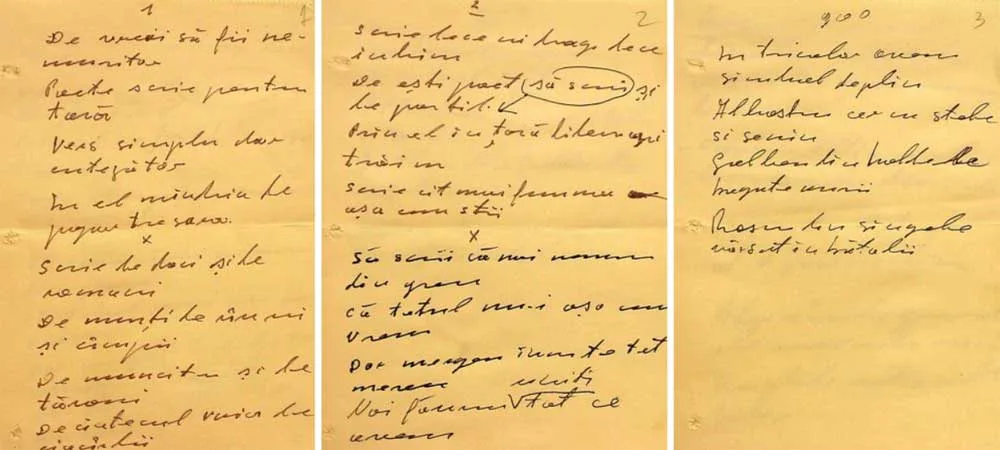 1
De vreai să fii ne-
muritor
Poete scrie pentru
țară
Vers simplu dar
cutezător
În el mîndria de
popor tresara.
x
Scrie de daci și de
romani
De munți de rîuri
și cîmpii
De muncitor și de
țărani
De cîntecul de
ciocîrlii
2
2
Scrie de ce ni drag de ce
iubim
De ești poet să scrii și
de partid.
Prin el în țară liberi
trăim
Scrie cît mai frumos
așa cum știi
x
Să scrii că noi muncim
din greu
că totul nu-i așa cum
vrem
Dar mergem înainte tot
mereu
uniți
Noi făurim tot ce
avem
3
In tricolor avem
simbol deplin
Albastru cer cu stele
si senin
Galben din holdele
bogate
Rosu din singele
vărsat in bătălii